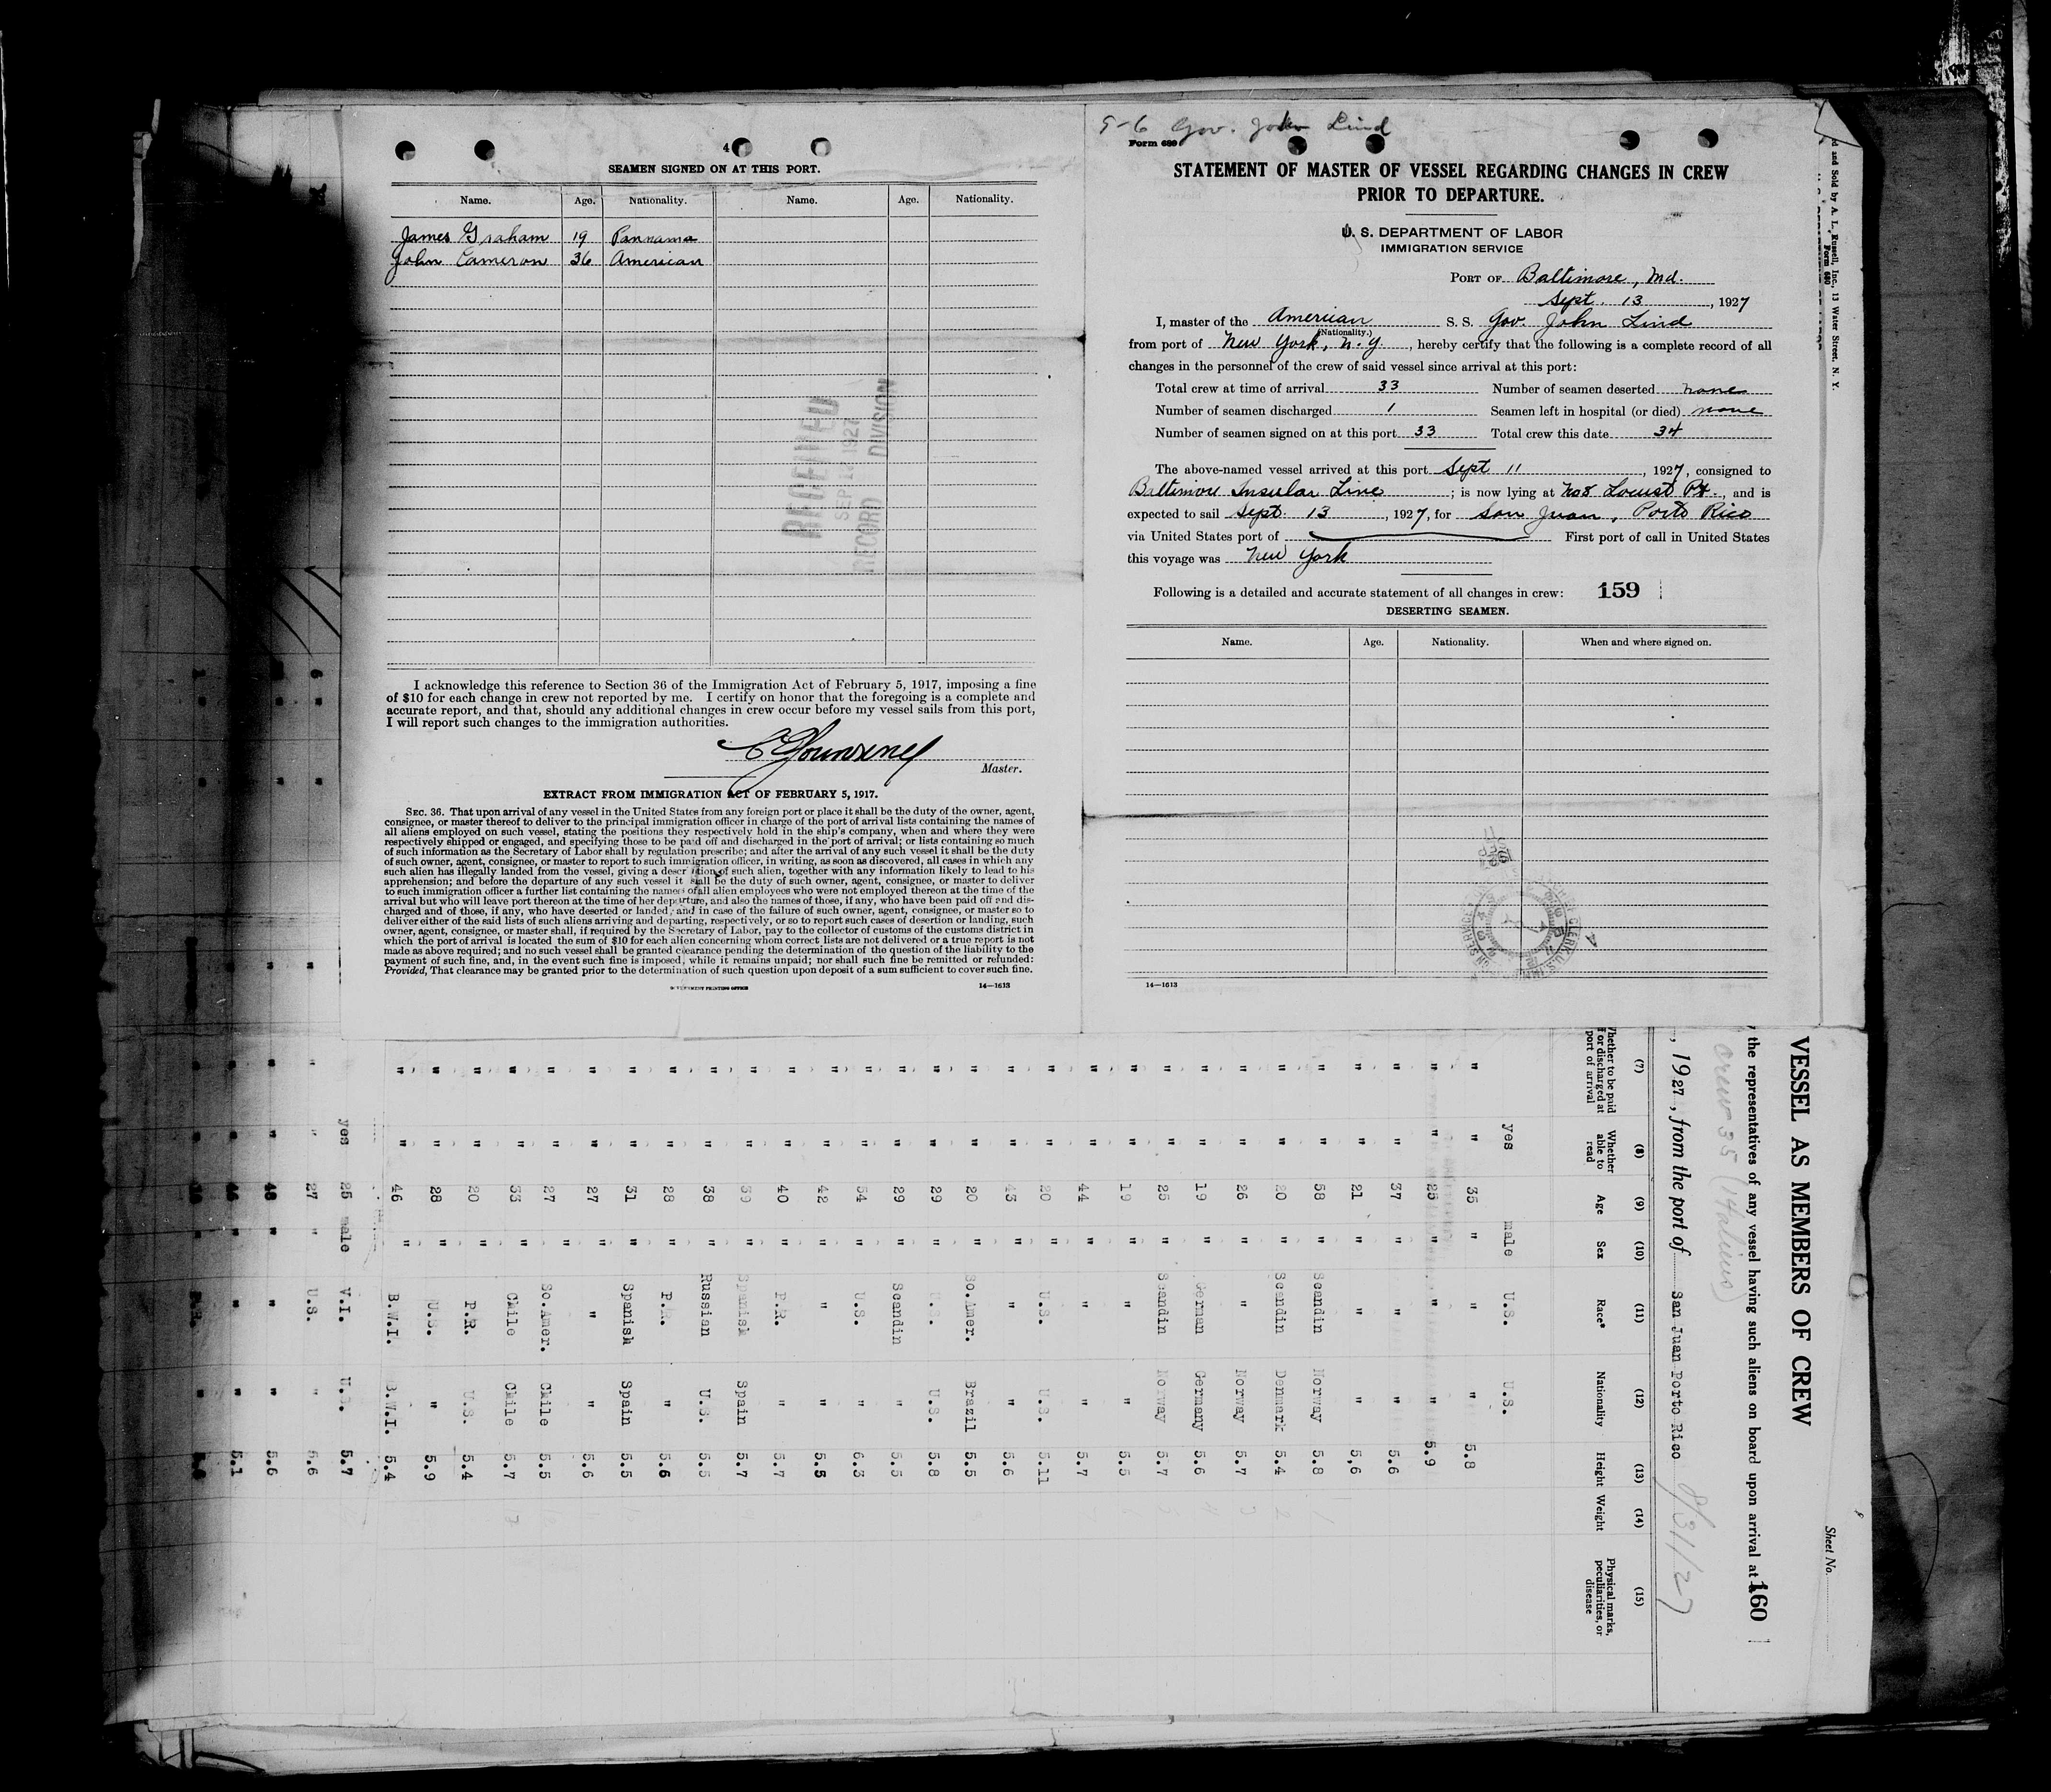 4
SEAMEN SIGNED ON AT THIS PORT.
Name. Age. Nationality. Name. Age. Nationality.
James Graham 19 Pannama
John Cameron 36 American
RECORD DIVISION
I acknowledge this reference to Section 36 of the Immigration Act of February 5, 1917, imposing a fine
of $10 for each change in crew not reported by me. I certify on honor that the foregoing is a complete and
accurate report, and that, should any additional changes in crew occur before my vessel sails from this port,
I will report such changes to the immigration authorities.
Master.
EXTRACT FROM IMMIGRATION ACT OF FEBRUARY 5, 1917.
SEC. 36. That upon arrival of any vessel in the United States from any foreign port or place it shall be the duty of the owner, agent,
consignee, or master thereof to deliver to the principal immigration officer in charge of the port of arrival lists containing the names of
all aliens employed on such vessel, stating the positions they respectively hold in the ship's company, when and where they were
respectively shipped or engaged, and specifying those to be paid off and discharged in the port of arrival; or lists containing so much
of such information as the Secretary of Labor shall by regulation prescribe; and after the arrival of any such vessel it shall be the duty
of such owner, agent, consignee, or master to report to such immigration officer, in writing, as soon as discovered, all cases in which any
such alien has illegally landed from the vessel, giving a description of such alien, together with any information likely to lead to his
apprehension; and before the departure of any such vessel it shall be the duty of such owner, agent, consignee, or master to deliver
to such immigration officer a further list containing the names of all alien employees who were not employed thereon at the time of the
arrival but who will leave port thereon at the time of her departure, and also the names of those, if any, who have been paid off and dis-
charged and of those, if any, who have deserted or landed; and in case of the failure of such owner, agent, consignee, or master so to
deliver either of the said lists of such aliens arriving and departing, respectively, or so to report such cases of desertion or landing, such
owner, agent, consignee, or master shall, if required by the Secretary of Labor, pay to the collector of customs of the customs district in
which the port of arrival is located the sum of $10 for each alien concerning whom correct lists are not delivered or a true report is not
made as above required; and no such vessel shall be granted clearance pending the determination of the question of the liability to the
payment of such fine, and, in the event such fine is imposed, while it remains unpaid; nor shall such fine be remitted or refunded:
Provided, That clearance may be granted prior to the determination of such question upon deposit of a sum sufficient to cover such fine.
GOVERNMENT PRINTING OFFICE 14—1613
5-6 Gov. John Lind
Form 689
STATEMENT OF MASTER OF VESSEL REGARDING CHANGES IN CREW
PRIOR TO DEPARTURE.
U. S. DEPARTMENT OF LABOR
IMMIGRATION SERVICE
PORT OF Baltimore, Md.
Sept. 13, 1927
I, master of the American S. S. Gov. John Lind
(Nationality.)
from port of New York, N.Y., hereby certify that the following is a complete record of all
changes in the personnel of the crew of said vessel since arrival at this port:
Total crew at time of arrival 33 Number of seamen deserted none
Number of seamen discharged 1 Seamen left in hospital (or died) none
Number of seamen signed on at this port 33 Total crew this date 34
The above-named vessel arrived at this port Sept 11, 1927, consigned to
Baltimore Insular Line; is now lying at No 8 Locust Pt., and is
expected to sail Sept. 13, 1927, for San Juan, Porto Rico
via United States port of First port of call in United States
this voyage was New York
Following is a detailed and accurate statement of all changes in crew: 159
DESERTING SEAMEN.
Name. Age. Nationality. When and where signed on.
14—1613
d and Sold by A. L. Russell, Inc., 13 Water Street, N. Y.
Form 680
Sheet No.
VESSEL AS MEMBERS OF CREW
the representatives of any vessel having such aliens on board upon arrival at 160
crew 35
, 1927, from the port of San Juan Porto Rico 8/31/27
(7) (8) (9) (10) (11) (12) (13) (14) (15)
Whether to be paid off or discharged at port of arrival Whether able to read Age Sex Race* Nationality Height Weight Physical marks, peculiarities, or disease
yes male U.S. U.S.
" " 35 " " " 5.8
" " 25 " " " 5.9
" " 37 " " " 5.6
" " 21 " " " 5,6
" " 58 " Scandin Norway 5.8
" " 20 " Scandin Denmark 5.4
" " 26 " " Norway 5.7
" " 19 " German Germany 5.6
" " 25 " Scandin Norway 5.7
" " 19 " " " 5.5
" " 44 " " " 5.7
" " 20 " U.S. U.S. 5.11
" " 43 " " " 5.6
" " 20 " So.Amer. Brazil 5.5
" " 29 " U.S. U.S. 5.8
" " 29 " Scandin " 5.5
" " 54 " U.S. " 6.3
" " 42 " " " 5.5
" " 40 " P.R. " 5.7
" " 39 " Spanish Spain 5.7
" " 38 " Russian U.S. 5.5
" " 28 " P.R. " 5.6
" " 31 " Spanish Spain 5.5
" " 27 " " " 5.6
" " 27 " So.Amer. Chile 5.5
" " 33 " Chile Chile 5.7
" " 20 " P.R. U.S. 5.4
" " 28 " U.S. " 5.9
" " 46 " B.W.I. B.W.I. 5.4
yes 25 male V.I. U.S. 5.7
" " 27 " U.S. " 5.6
" " 48 " " " 5.6
" " " " 5.1